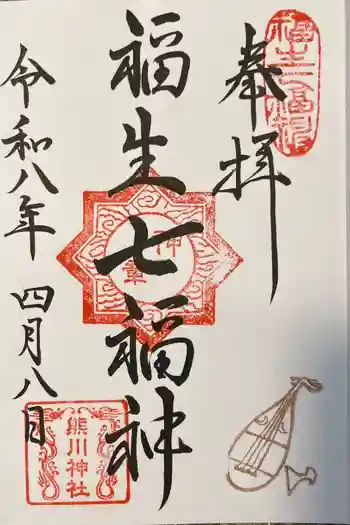 奉拝
福生七福神
神章
令和八年 四月八日
熊川神社